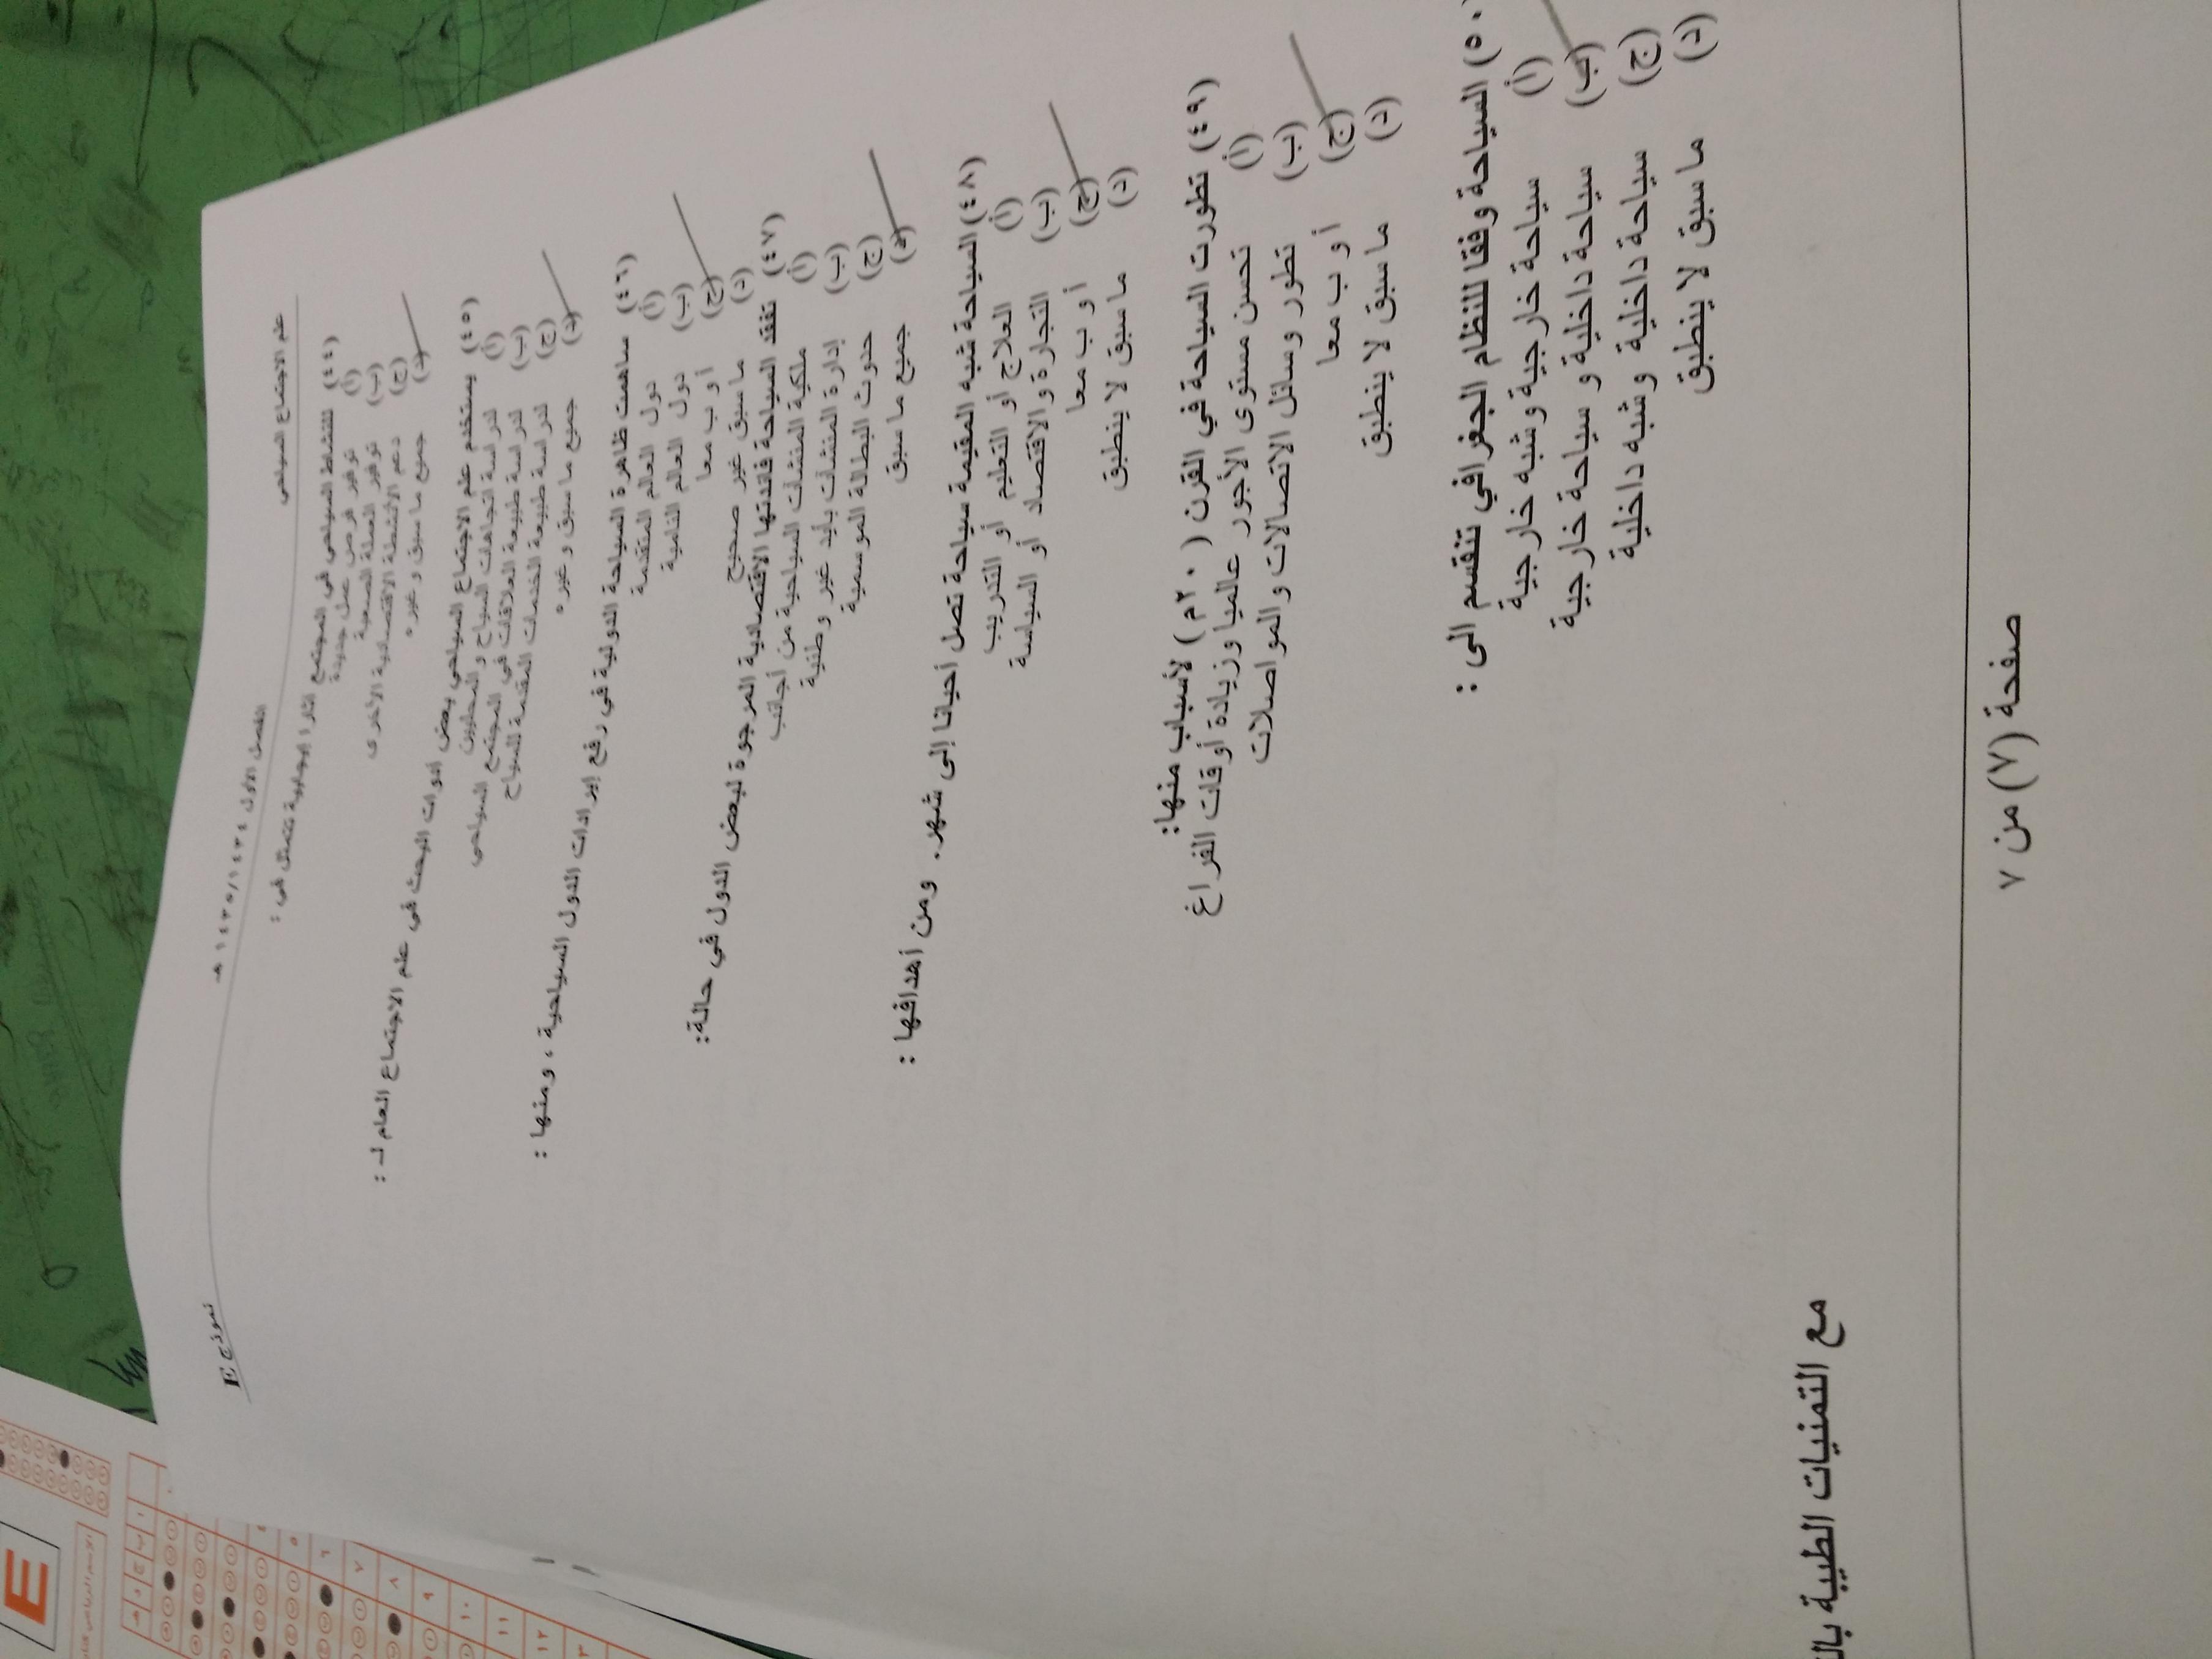 علم الاجتماع السياحي
الفصل الاول ١٤٣٥/١٤٣٤ هـ
نموذج E
(٤٤) للنشاط السياحي في المجتمع اثارا ايجابية تتمثل في :
(أ) توفير فرص عمل جديدة
(ب) توفير العملة الصعبة
(ج) دعم الأنشطة الاقتصادية الأخرى
(د) جميع ما سبق وغيره
(٤٥) يستخدم علم الاجتماع السياحي بعض أدوات البحث في علم الاجتماع العام لـ :
(أ) لدراسة اتجاهات السياح و المحليين
(ب) لدراسة طبيعة العلاقات في المجتمع السياحي
(ج) لدراسة طبيعة الخدمات المقدمة للسياح
(د) جميع ما سبق وغيره
(٤٦) ساهمت ظاهرة السياحة الدولية في رفع إيرادات الدول السياحية ، ومنها :
(أ) دول العالم المتقدمة
(ب) دول العالم النامية
(ج) أ و ب معا
(د) ما سبق غير صحيح
(٤٧) تفقد السياحة فائدتها الاقتصادية المرجوة لبعض الدول في حالة:
(أ) ملكية المنشآت السياحية من أجانب
(ب) إدارة المنشآت بأيد غير وطنية
(ج) حدوث البطالة الموسمية
(د) جميع ما سبق
(٤٨) السياحة شبه المقيمة سياحة تصل أحيانا إلى شهر. ومن أهدافها :
(أ) العلاج أو التعليم أو التدريب
(ب) التجارة والاقتصاد أو السياسة
(ج) أ و ب معا
(د) ما سبق لا ينطبق
(٤٩) تطورت السياحة في القرن ( ٢٠م ) لأسباب منها:
(أ) تحسن مستوى الأجور عالميا وزيادة أوقات الفراغ
(ب) تطور وسائل الاتصالات والمواصلات
(ج) أ و ب معا
(د) ما سبق لا ينطبق
(٥٠) السياحة وفقا للنظام الجغرافي تنقسم الى :
(أ) سياحة خارجية وشبه خارجية
(ب) سياحة داخلية و سياحة خارجية
(ج) سياحة داخلية وشبه داخلية
(د) ما سبق لا ينطبق
مع التمنيات الطيبة
صفحة (٧) من ٧
E
أ ب ج د هـ
٥
٦
٧
٨
٩
١٠
١١
١٢